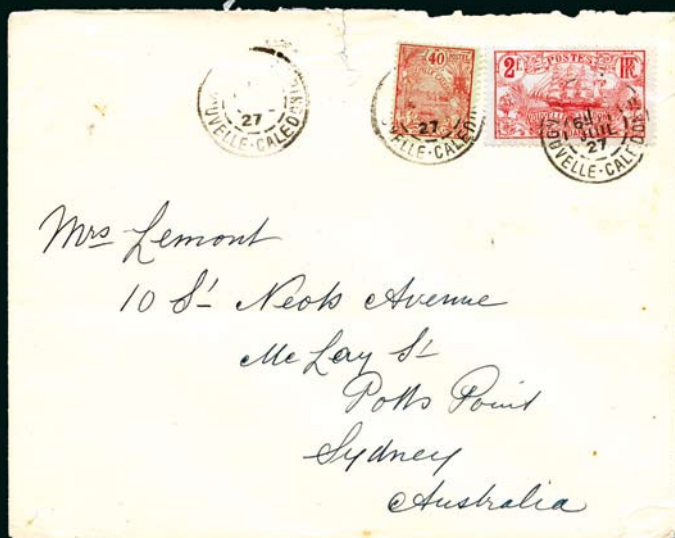 27
NOUVELLE-CALEDONIE
40
27
NOUVELLE-CALEDONIE
2F. POSTES RF
JUIL
27
NOUVELLE-CALEDONIE
Mrs Lemont
10 St Neots Avenue
Mc Lay St
Potts Point
Sydney
Australia